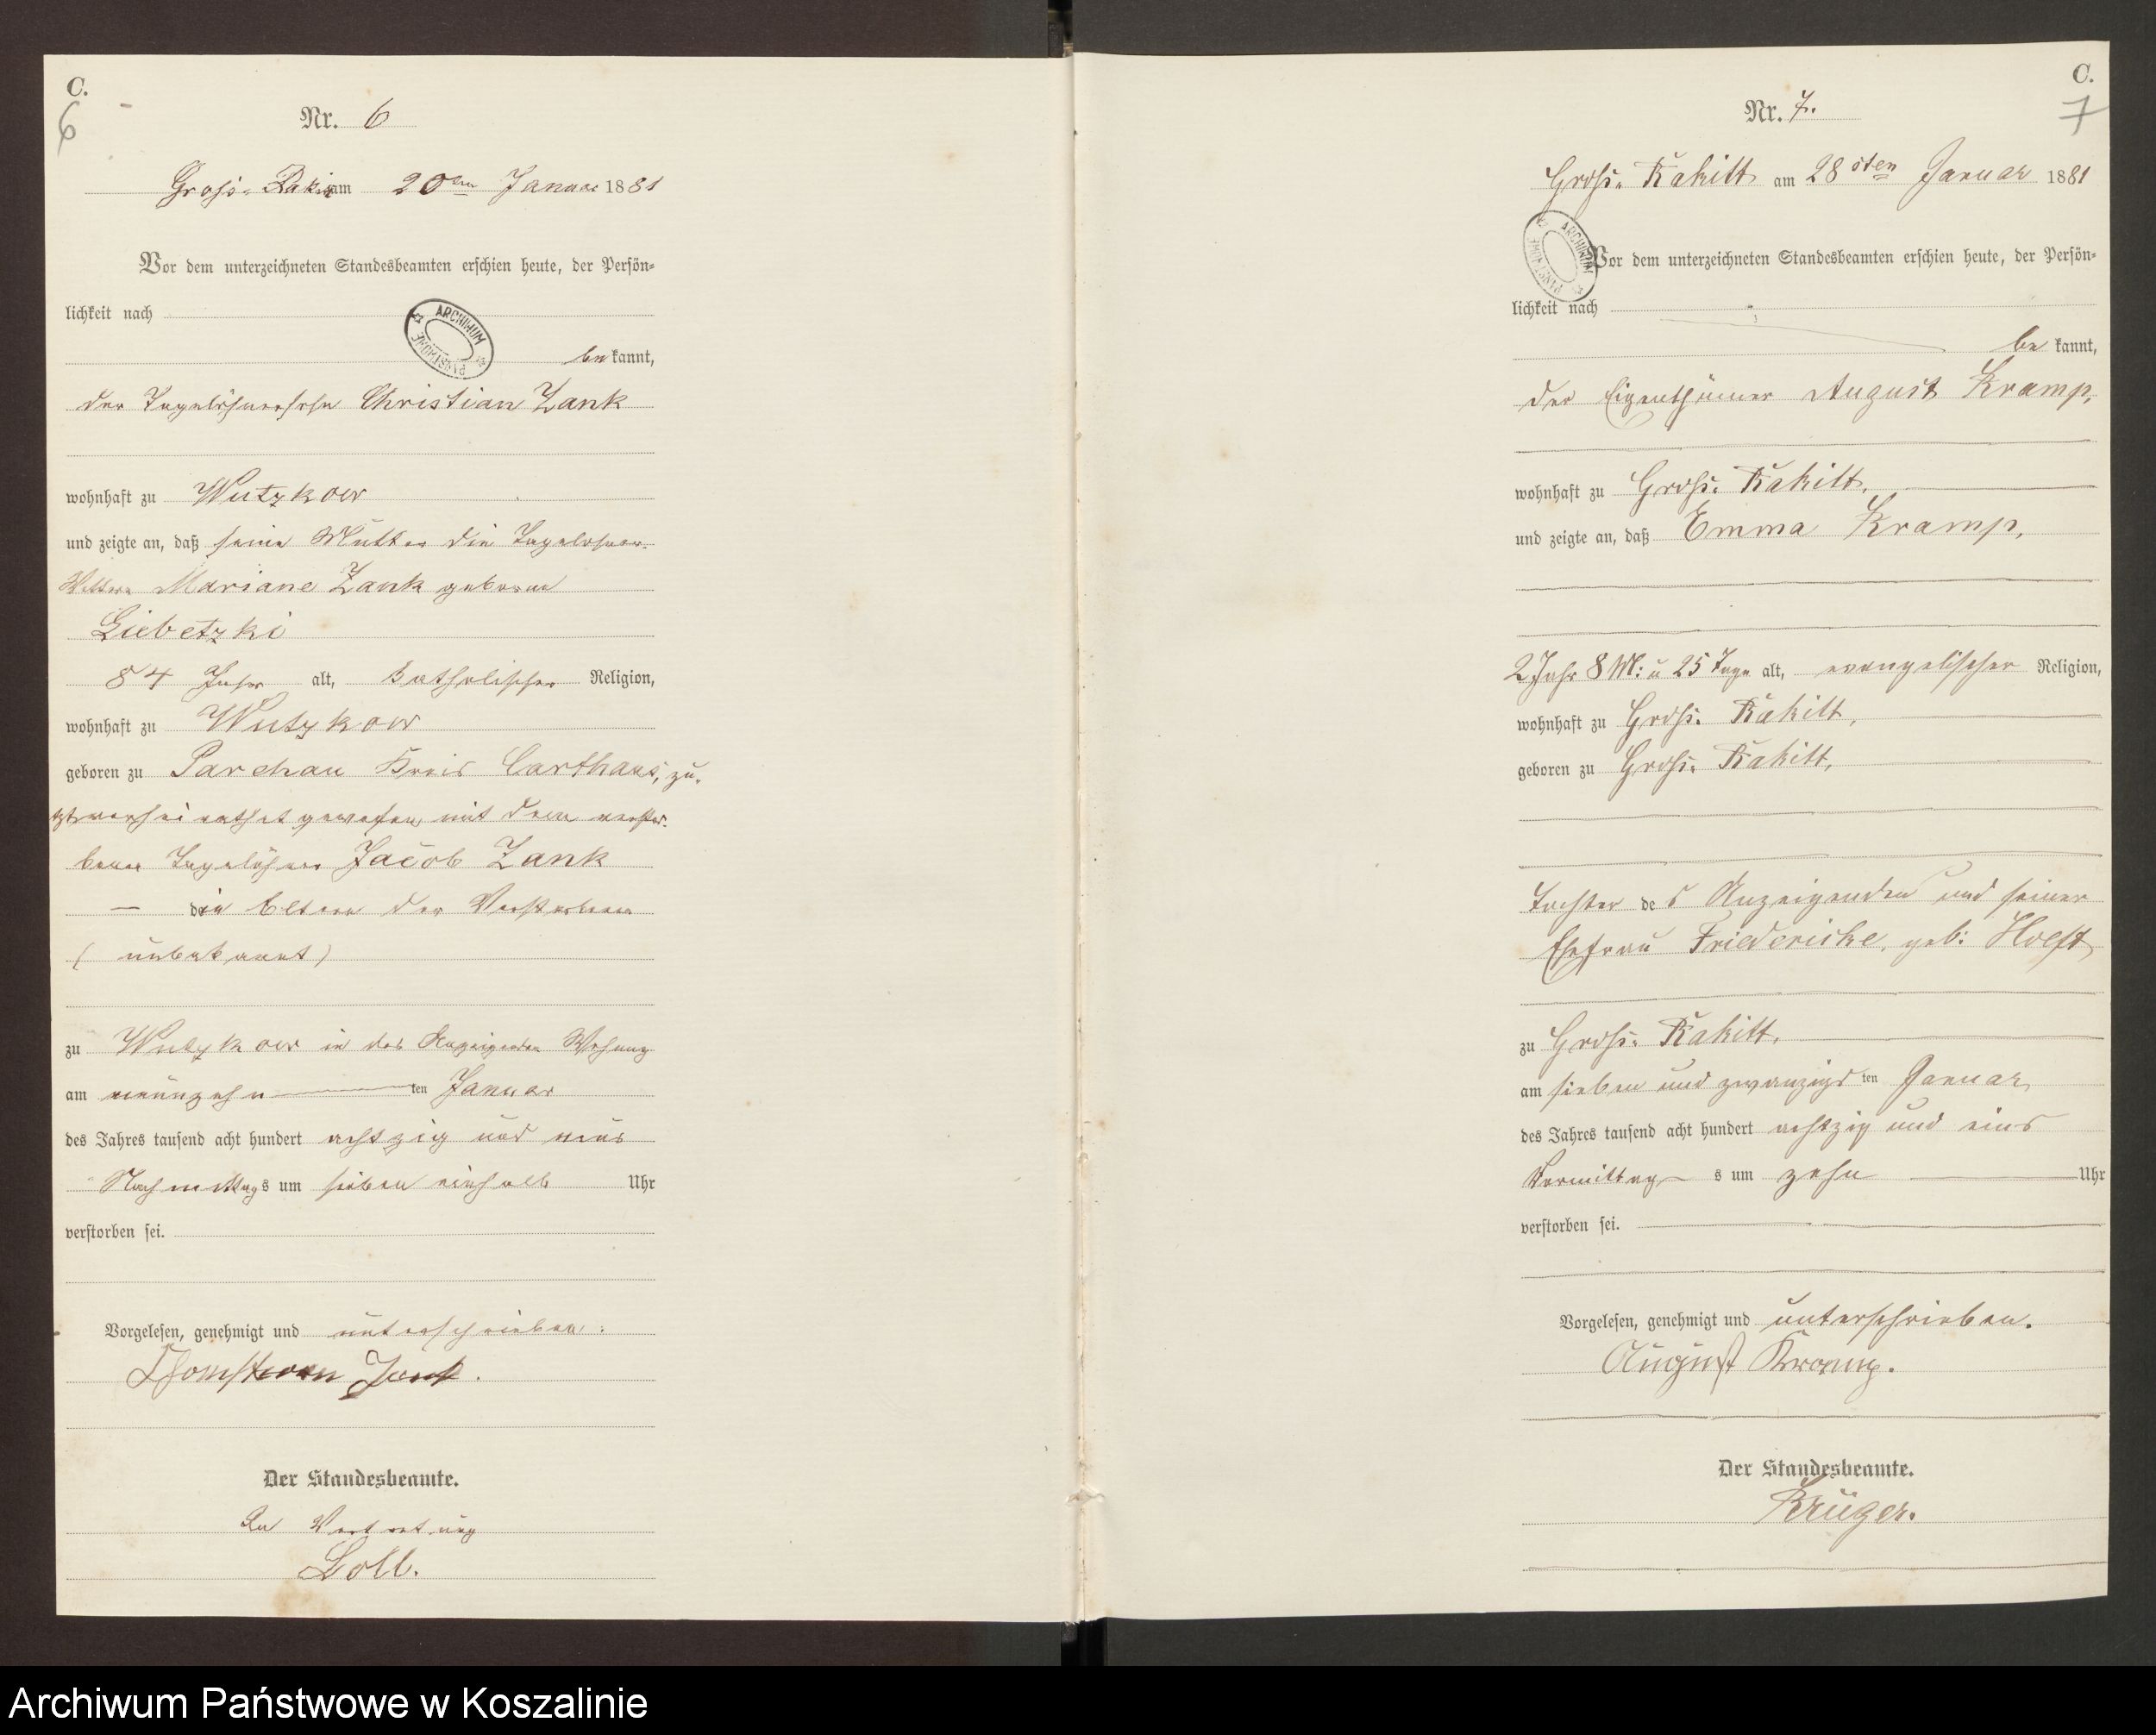 C.
6
Nr. 6
Gross-Rakitt am 20ten Januar 1881
Vor dem unterzeichneten Standesbeamten erschien heute, der Persön-
lichkeit nach
ARCHIWUM PAŃSTWOWE
be kannt,
der Tagelöhnersohn Christian Zank
wohnhaft zu Wutzkow
und zeigte an, daß seine Mutter die Tagelöhner-
Wittwe Mariane Zank geborene
Liebetzki
84 Jahr alt, katholischer Religion,
wohnhaft zu Wutzkow
geboren zu Parchau Kreis Carthaus, zu-
letzt verheirathet gewesen mit dem verstor-
benen Tagelöhner Jacob Zank
— die Eltern der Verstorbenen
(unbekannt)
zu Wutzkow in des Anzeigenden Wohnung
am neunzehn ten Januar
des Jahres tausend acht hundert achtzig und eins
Nachmittags um sieben einhalb Uhr
verstorben sei.
Vorgelesen, genehmigt und unterschrieben.
Zank.
Der Standesbeamte.
In Vertretung
C.
7
Nr. 7.
Gross-Rakitt am 28sten Januar 1881
ARCHIWUM PAŃSTWOWE
Vor dem unterzeichneten Standesbeamten erschien heute, der Persön-
lichkeit nach
be kannt,
der Eigenthümer August Kramp,
wohnhaft zu Gross-Rakitt,
und zeigte an, daß Emma Kramp,
2 Jahr 8 M: u 25 Tage alt, evangelischer Religion,
wohnhaft zu Gross-Rakitt,
geboren zu Gross-Rakitt,
Tochter des Anzeigenden und seiner
Ehefrau Friedericke, geb: Hoeft
zu Gross-Rakitt,
am sieben und zwanzigsten Januar
des Jahres tausend acht hundert achtzig und eins
Vormittag s um zehn Uhr
verstorben sei.
Vorgelesen, genehmigt und unterschrieben.
August Kramp.
Der Standesbeamte.
Krüger.
Archiwum Państwowe w Koszalinie